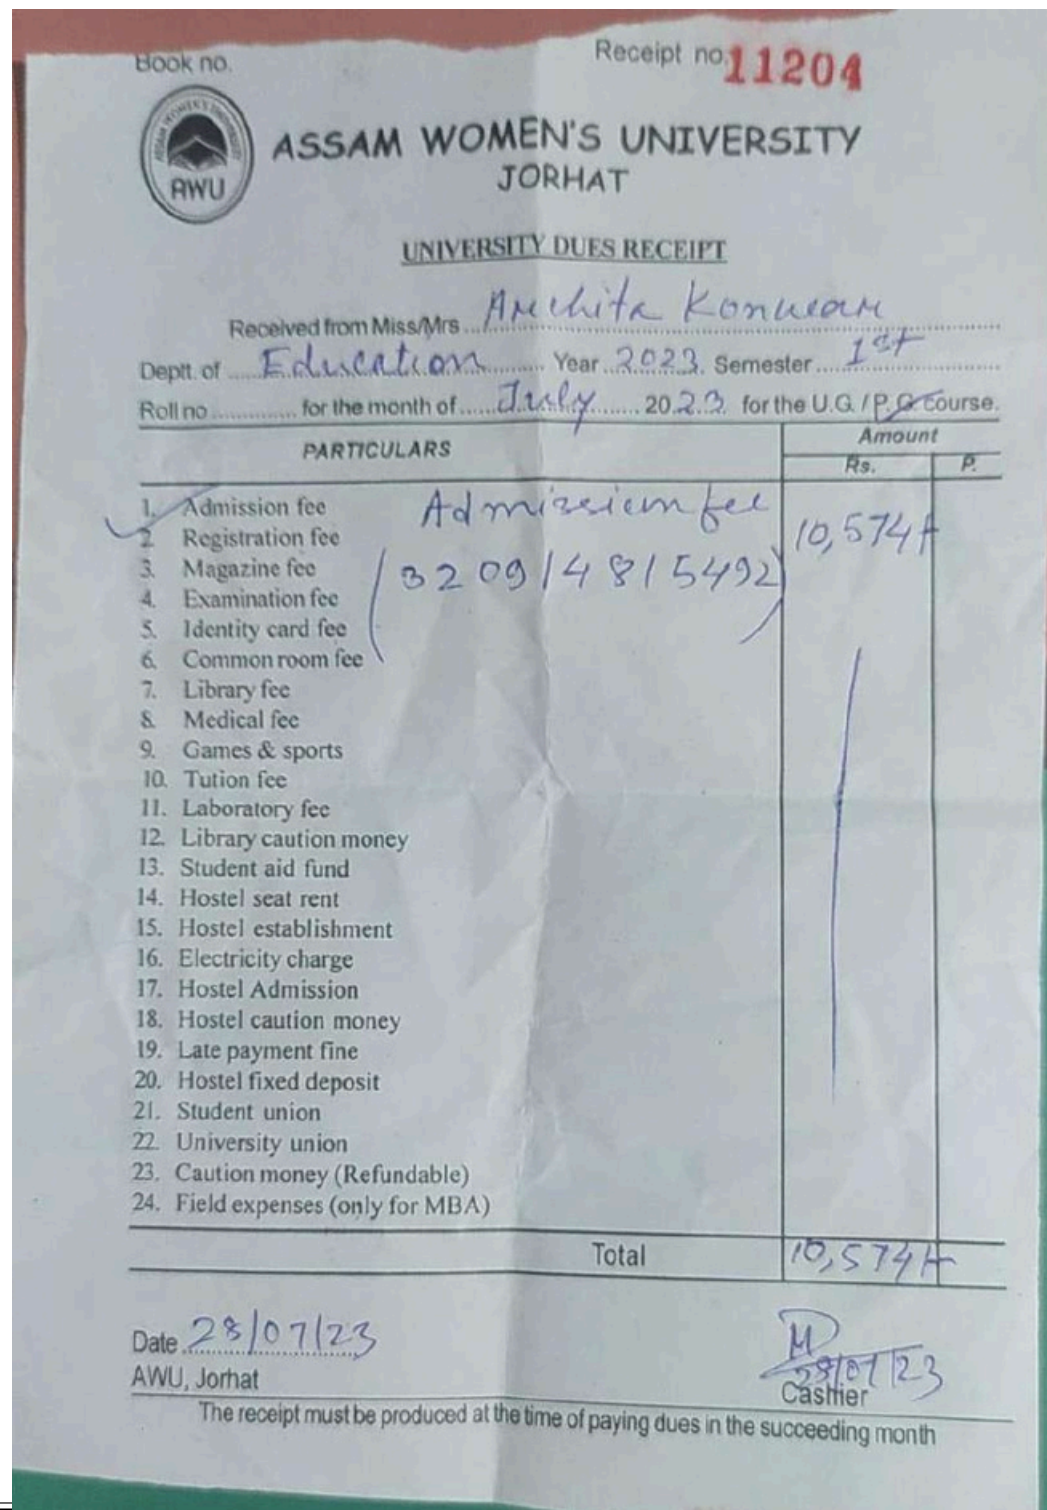 Book no.
Receipt no. 11204
ASSAM WOMEN'S UNIVERSITY
AWU
ASSAM WOMEN'S UNIVERSITY
JORHAT
UNIVERSITY DUES RECEIPT
Received from Miss/Mrs Archita Konwar
Deptt. of Education Year 2023. Semester 1st
Roll no for the month of July 2023 for the U.G. / P.G. course.
PARTICULARS Amount
Rs. P.
1. Admission fee Admission fee
2. Registration fee 10,574/-
3. Magazine fee (3209/48/5492)
4. Examination fee
5. Identity card fee
6. Common room fee
7. Library fee
8. Medical fee
9. Games & sports
10. Tution fee
11. Laboratory fee
12. Library caution money
13. Student aid fund
14. Hostel seat rent
15. Hostel establishment
16. Electricity charge
17. Hostel Admission
18. Hostel caution money
19. Late payment fine
20. Hostel fixed deposit
21. Student union
22. University union
23. Caution money (Refundable)
24. Field expenses (only for MBA)
Total 10,574/-
Date 28/07/23
28/07/23
AWU, Jorhat Cashier
The receipt must be produced at the time of paying dues in the succeeding month